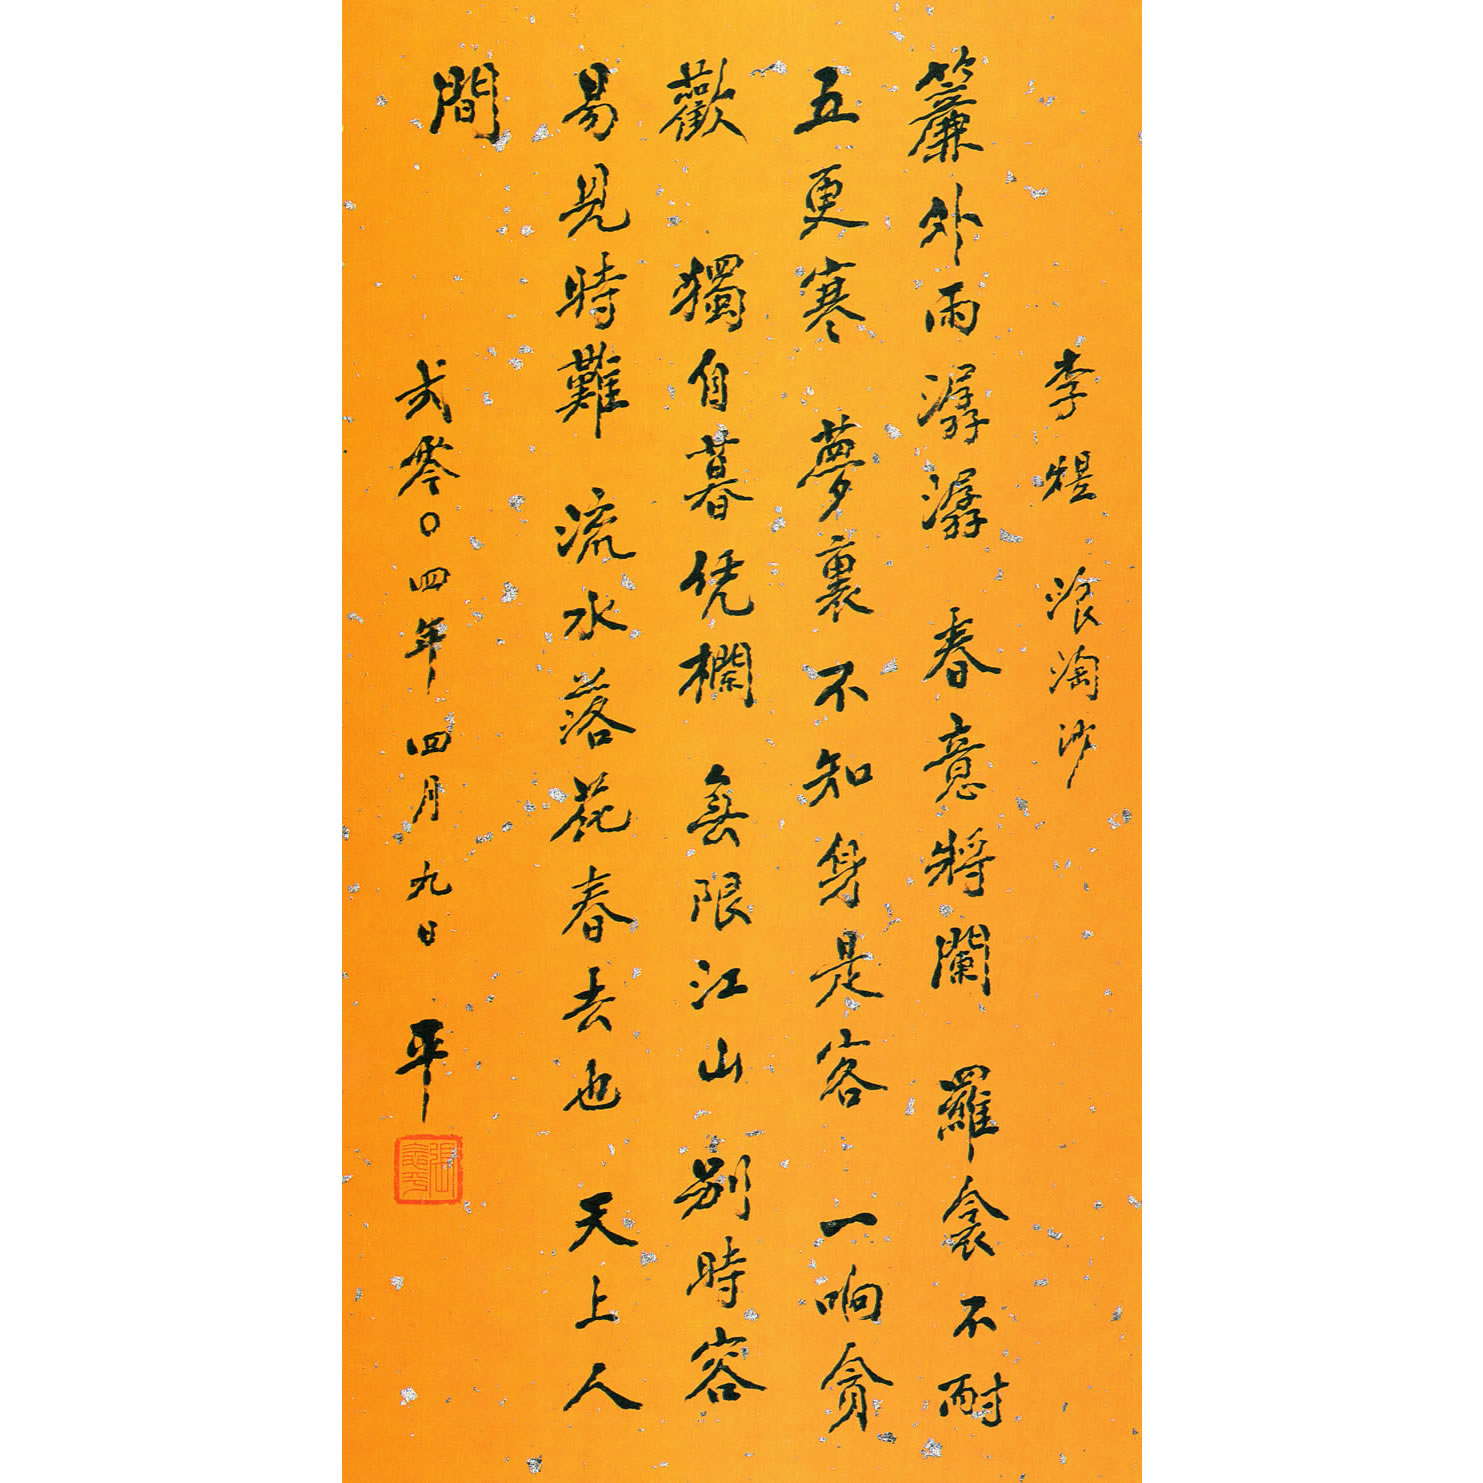 李煜 浪淘沙
簾外雨潺潺 春意將闌 羅衾不耐
五更寒 夢裏不知身是客 一响貪
歡 獨自暮凭欄 無限江山 別時容
易見時難 流水落花春去也 天上人
間
弍零〇四年四月九日 平